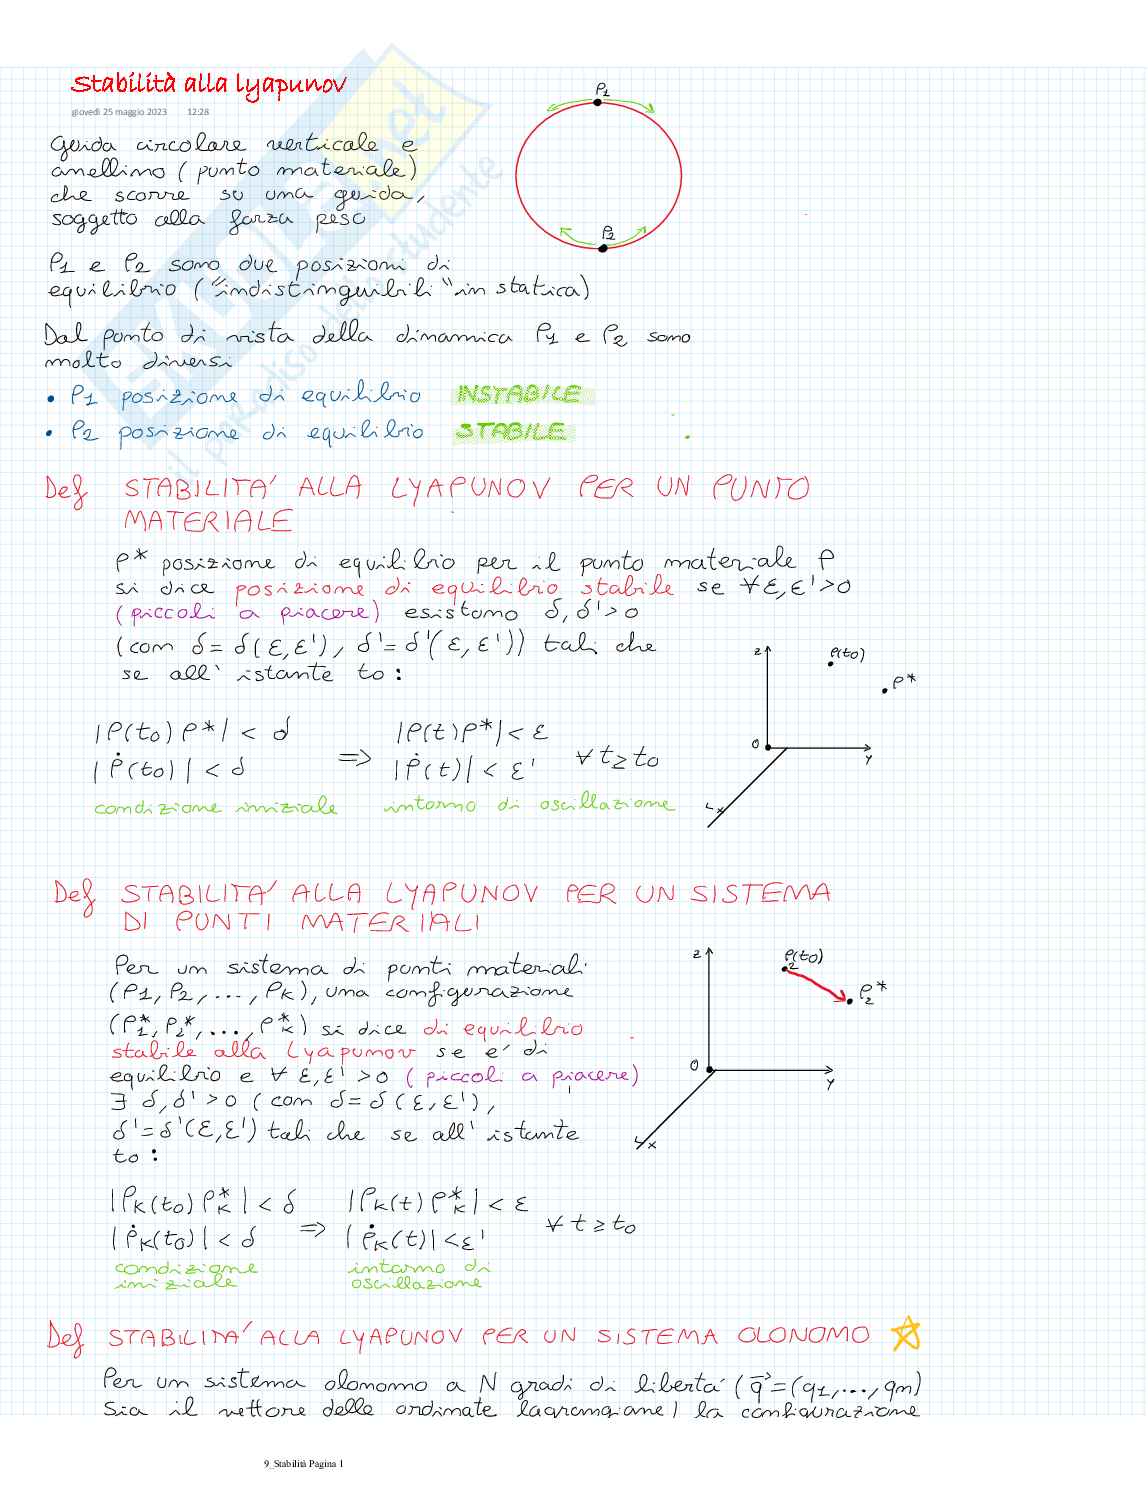 Stabilità alla lyapunov
giovedì 25 maggio 2023 12:28
P1
Guida circolare verticale e
anellino ( punto materiale)
che scorre su una guida,
soggetto alla forza peso
P2
P1 e P2 sono due posizioni di
equilibrio ( "indistinguibili" in statica)
Dal punto di vista della dinamica P1 e P2 sono
molto diversi
• P1 posizione di equilibrio INSTABILE
• P2 posizione di equilibrio STABILE
Def STABILITA' ALLA LYAPUNOV PER UN PUNTO
MATERIALE
P* posizione di equilibrio per il punto materiale P
si dice posizione di equilibrio stabile se ∀ ε, ε' > 0
( piccoli a piacere) esistono δ, δ' > 0
(com δ = δ(ε, ε'), δ' = δ'(ε, ε')) tali che
se all' istante to :
z P(to) P*
O y
x
|P(to) P*| < δ ⇒ |P(t) P*| < ε
|Ṗ(to)| < δ |Ṗ(t)| < ε' ∀ t ≥ to
condizione iniziale intorno di oscillazione
Def STABILITA' ALLA LYAPUNOV PER UN SISTEMA
DI PUNTI MATERIALI
Per un sistema di punti materiali
(P1, P2, ..., PK), una configurazione
(P1*, P2*, ..., PK*) si dice di equilibrio
stabile alla Lyapunov se e' di
equilibrio e ∀ ε, ε' > 0 ( piccoli a piacere)
∃ δ, δ' > 0 ( com δ = δ (ε, ε'),
δ' = δ'(ε, ε') tali che se all' istante
to :
z P2(to) P2*
O y
x
|PK(to) PK*| < δ ⇒ |PK(t) PK*| < ε
|ṖK(to)| < δ |ṖK(t)| < ε' ∀ t ≥ to
condizione intorno di
iniziale oscillazione
Def STABILITA' ALLA LYAPUNOV PER UN SISTEMA OLONOMO
Per un sistema olonomo a N gradi di liberta' ( q⃗ = (q1, ..., qn)
Sia il vettore delle ordinate lagrangiane) la configurazione
9_Stabilità Pagina 1
il paradiso dello studente